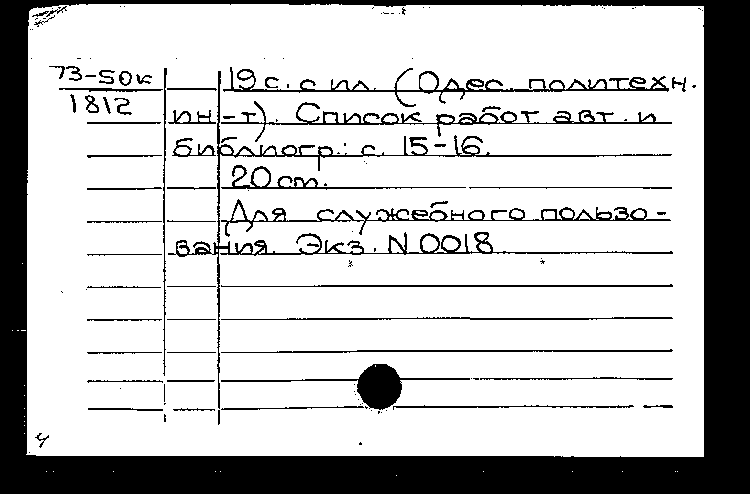 73-50к
1812
19 с. с ил. (Одес. политехн.
ин-т). Список работ авт. и
библиогр.: с. 15-16.
20 cm.
Для служебного пользо-
вания. Экз. N 0018
4